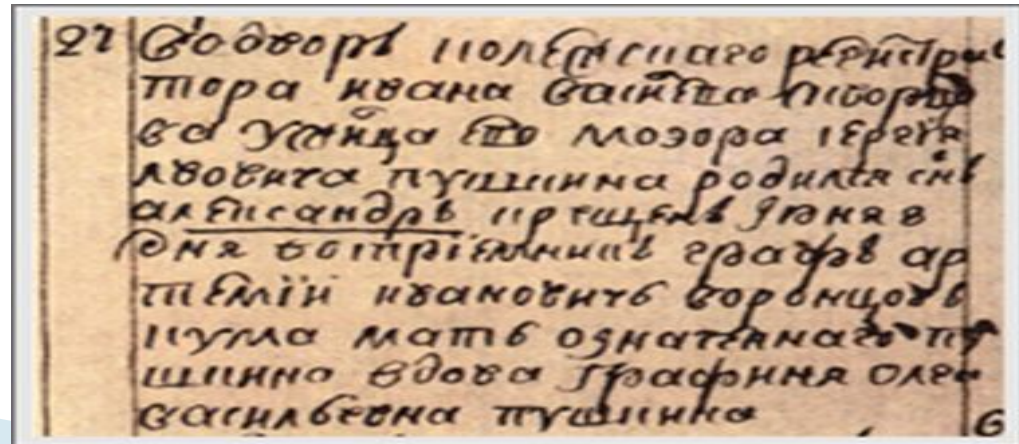 27 Во дворѣ колежскаго регистра
тора Ивана Васильева Скворцо
ва у жильца ево моэора Сергія
Львовича Пушкина родился снъ
Александръ крещенъ Июня 8
дня восприемникъ графъ Ар
темїй Ивановичь Воронцовъ
кума мать означеннаго
вдова Олга
Васильевна Пушкина
6